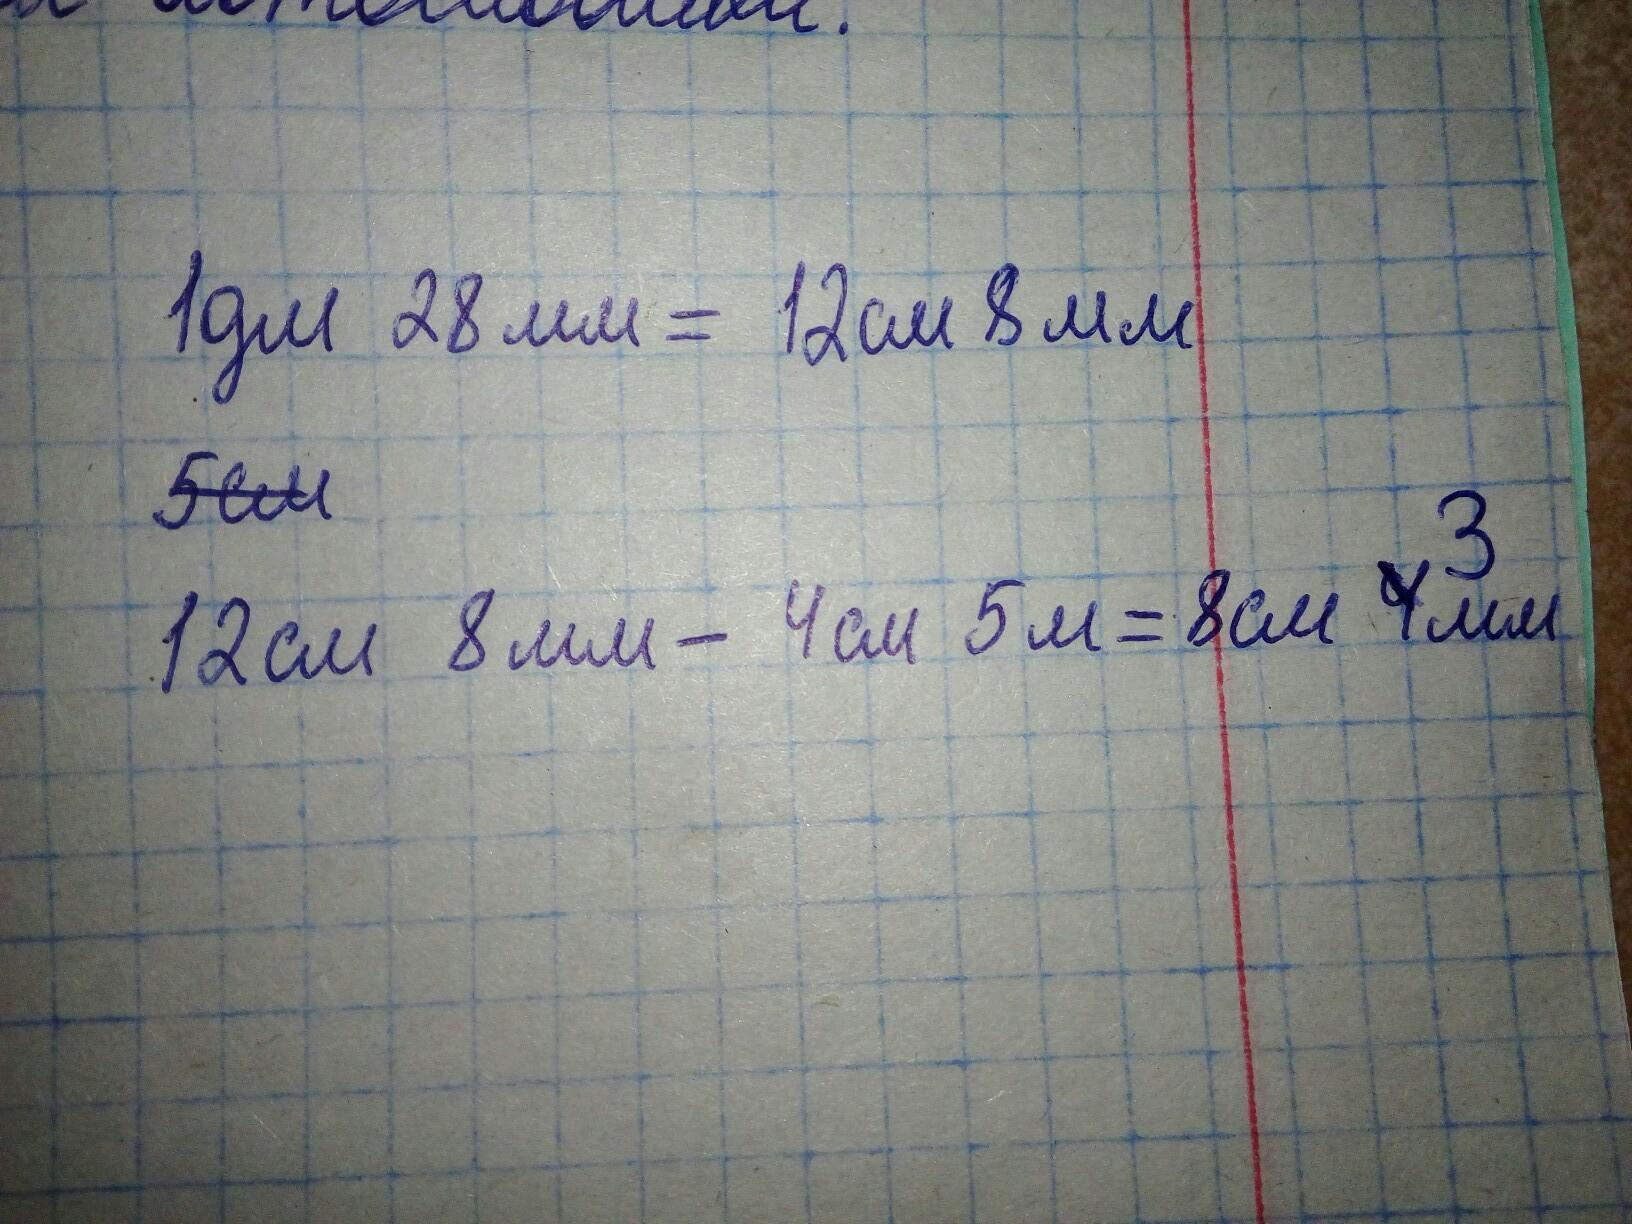 1дм 28мм = 12см 8мм
5см
12см 8мм - 4см 5м = 8см 3мм